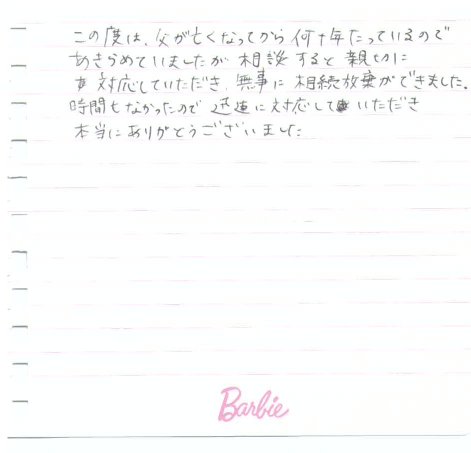 この度は、父が亡くなってから何十年たっているので
あきらめていましたが 相談すると親切に
対応していただき、無事に相続放棄ができました。
時間もなかったので 迅速に対応して いただき
本当にありがとうございました
Barbie